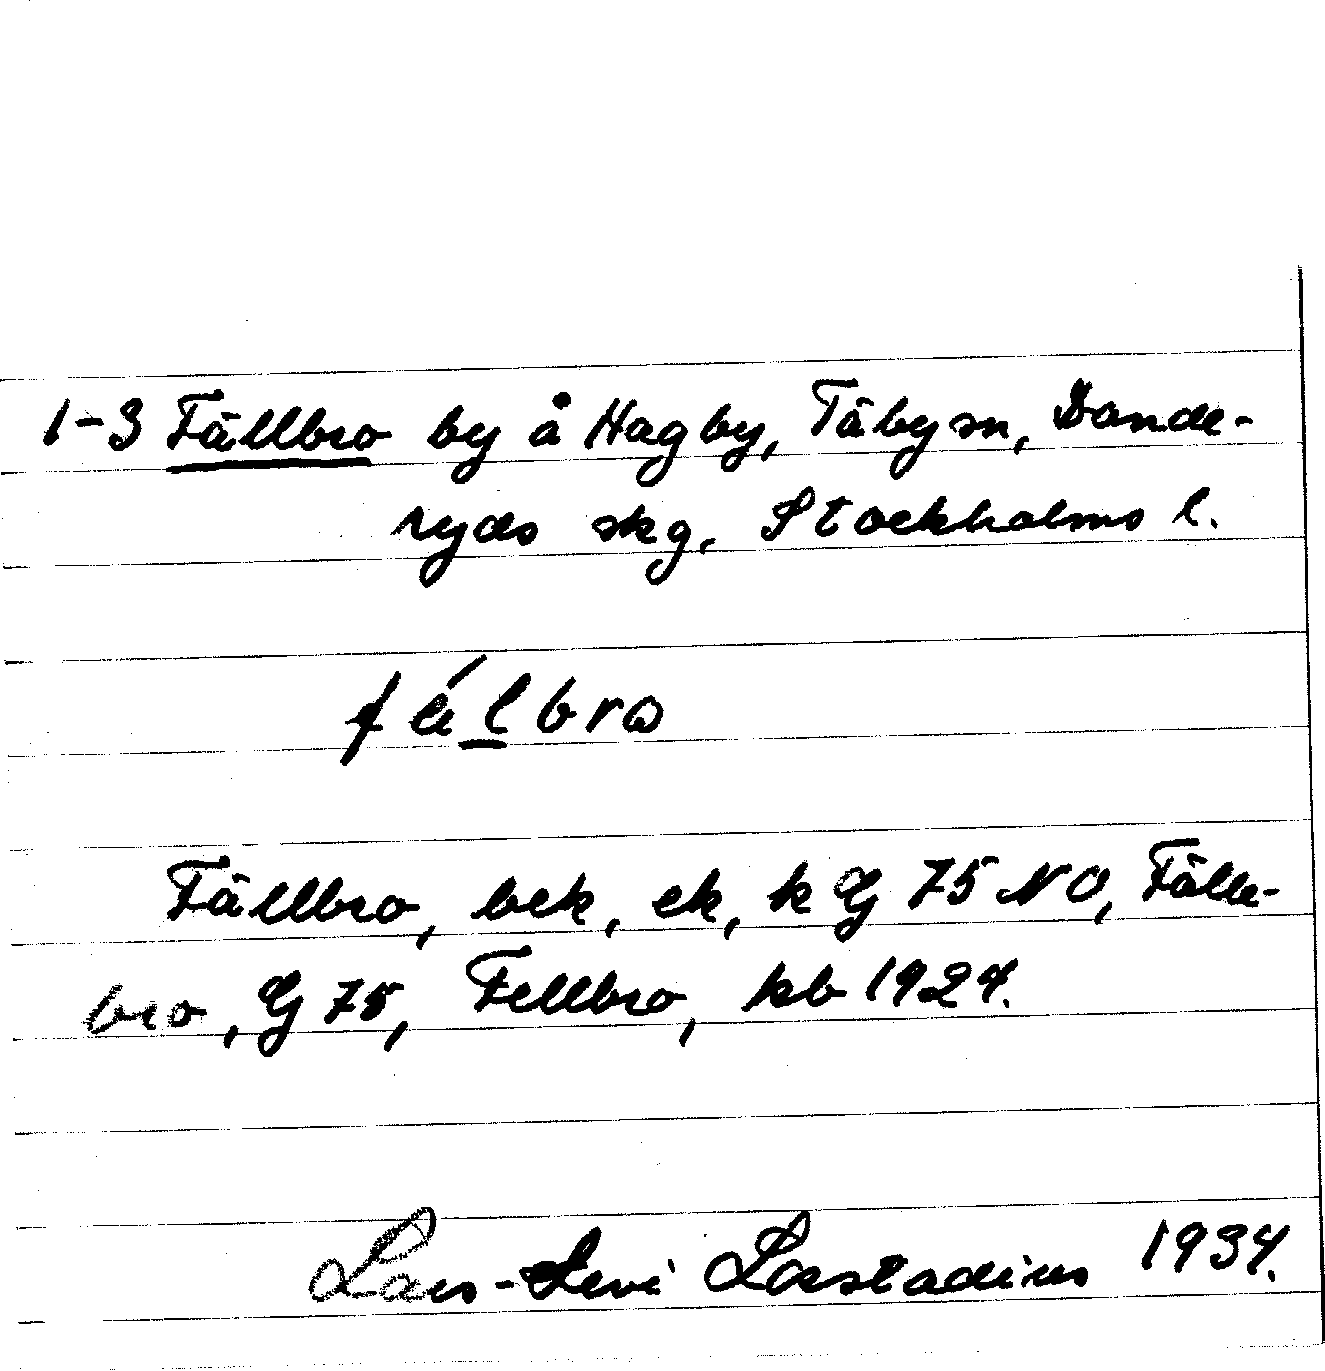 1-3 Fällbro by å Hagby, Täby sn, Dande-
ryds skg. Stockholms l.
fǽlbro
Fällbro, bek, ek, k G 75 NO, Fälle-
bro, G 75, Fellbro, kb 1924.
Lars-Levi Læstadius 1934.